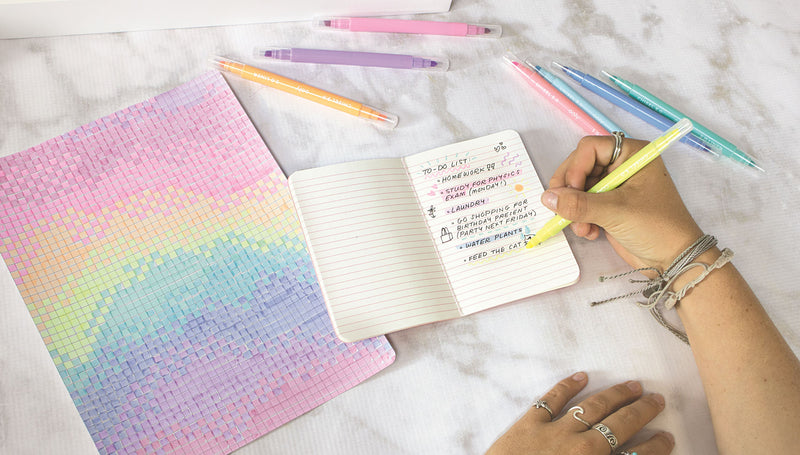 TO-DO LIST
• HOMEWORK
• STUDY FOR PHYSICS
EXAM (MONDAY!)
• LAUNDRY
• GO SHOPPING FOR
BIRTHDAY PRESENT
(PARTY NEXT FRIDAY)
• WATER PLANTS
• FEED THE CATS